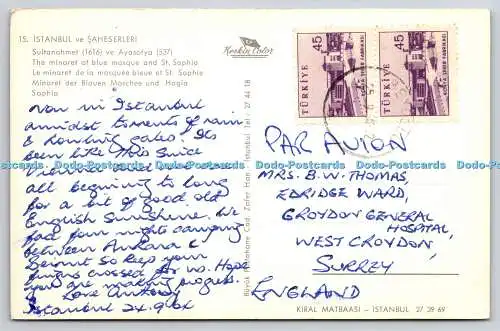 15. İSTANBUL ve ŞAHESERLERİ
Sultanahmet (1616) ve Ayasofya (537)
The minaret of blue mosque and St. Sophia
Le minaret de la mosquée bleue et St. Sophie
Minaret der Blauen Moschee und Hagia
Sophia
Keskin Color
Now in Istanbul
amidst torrents of rain
& howling gales! Its
been like this since
Vienna and we're
all begining to long
for a bit of good old
English Sunshine. We
had four nights camping
between Ankara &
Beirut so keep your
fingers crossed for us. Hope
you are making progress.
Love Anthony
Istanbul 24.9.64
Büyük Postahane Cad. Zafer Han İstanbul Tel: 27 44 18
45
TÜRKİYE
45
TÜRKİYE
PAR AVION
MRS. B.W. THOMAS,
EDRIDGE WARD,
CROYDON GENERAL
HOSPITAL,
WEST CROYDON
SURREY
ENGLAND
KIRAL MATBAASI - İSTANBUL 27 29 69
Dodo-Postcards Dodo-Postcards Dodo-Postcards Dodo-Postcards Dodo-Postcards